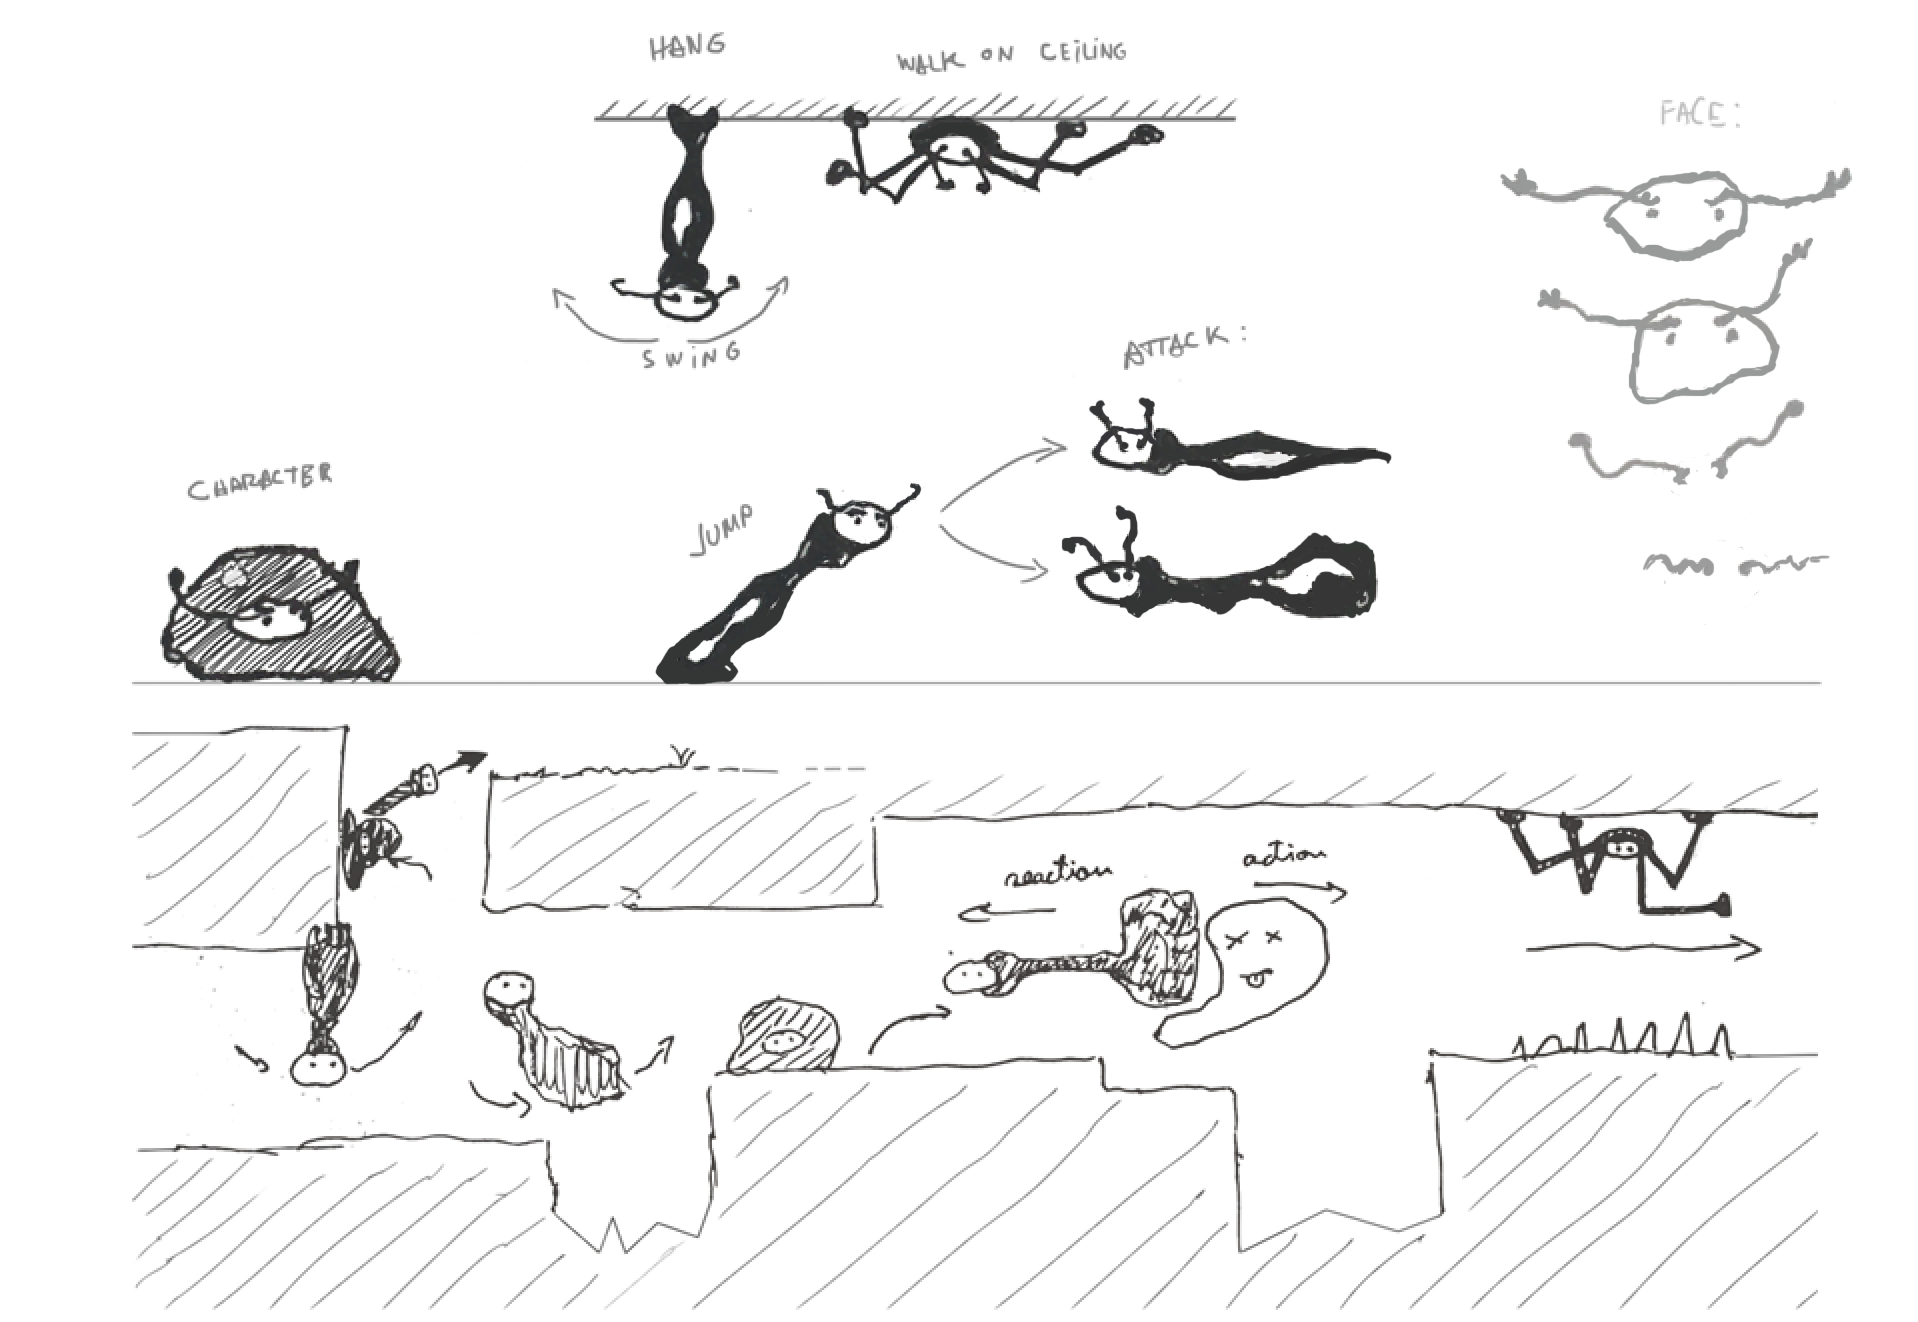 HANG
WALK ON CEiLiNG
FACE:
SWiNG
ATTACK:
CHARACTER
JUMP
reaction
action